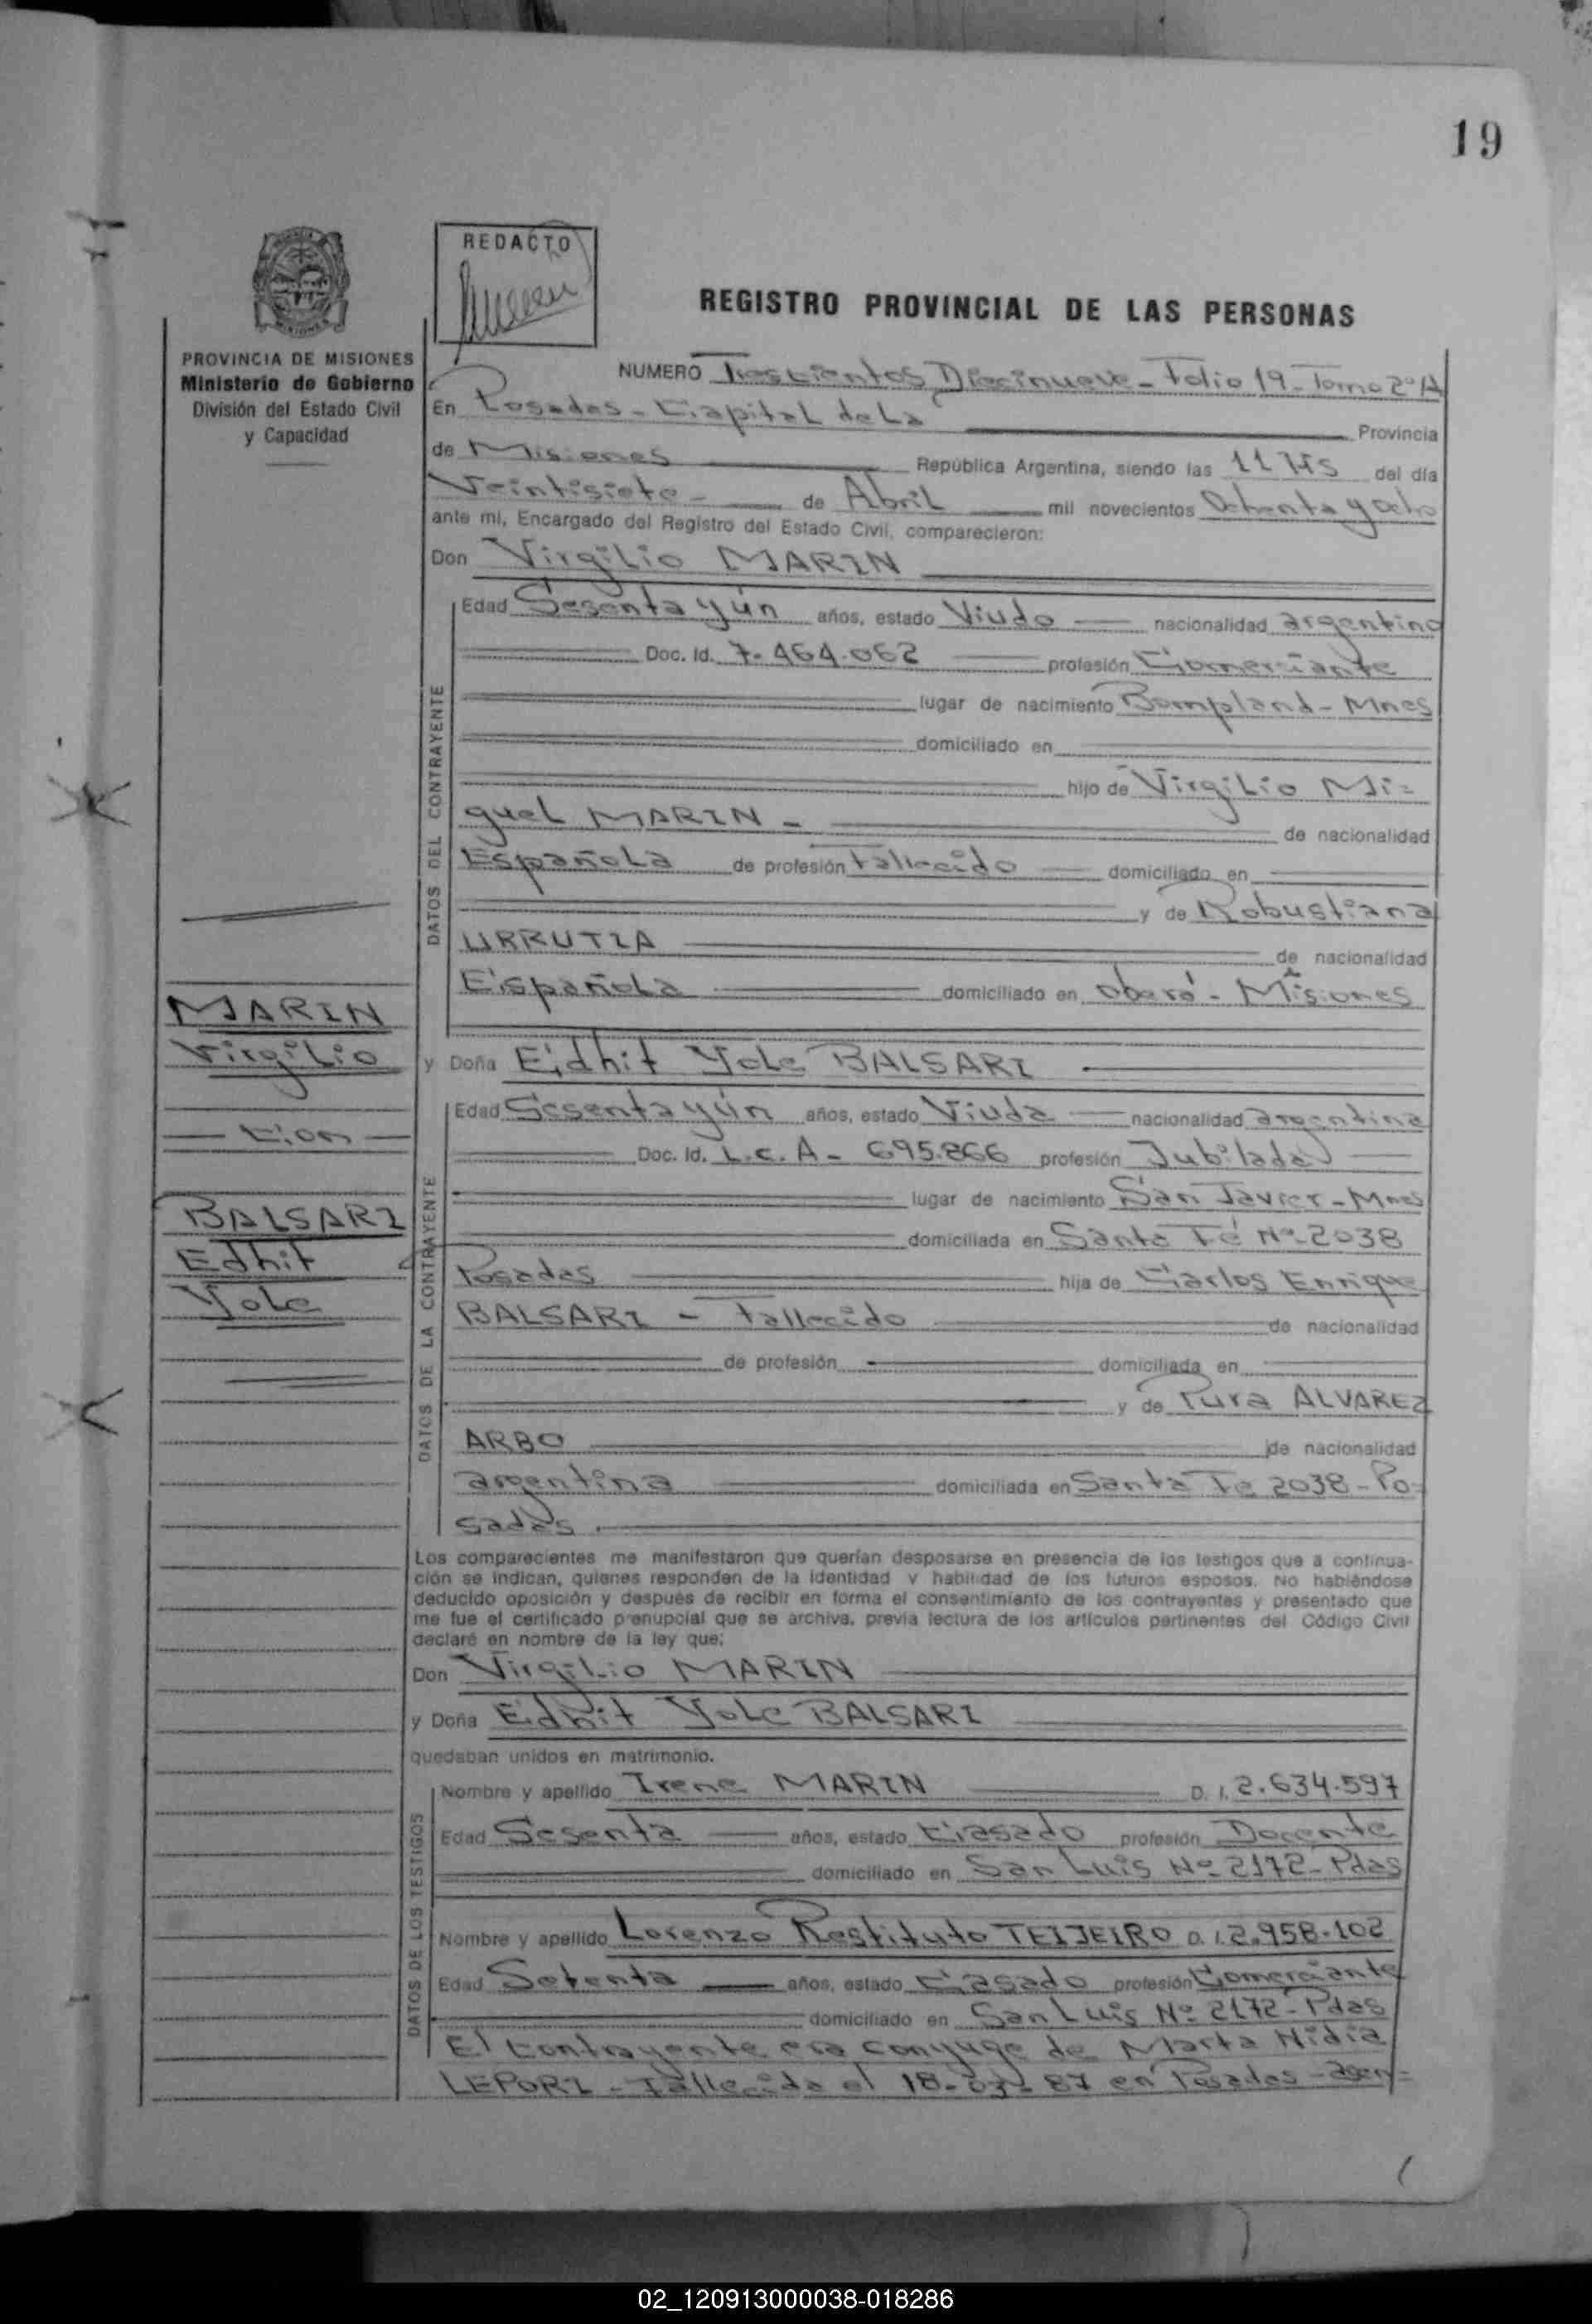 19
REDACTO
REGISTRO PROVINCIAL DE LAS PERSONAS
PROVINCIA DE MISIONES
Ministerio de Gobierno
División del Estado Civil
y Capacidad
NUMERO Trescientos Diecinueve - Folio 19 - Tomo 2º A
En Posadas - Capital de La Provincia
de Misiones República Argentina, siendo las 11 HS del día
Veintisiete - de Abril mil novecientos Ochenta y ocho
ante mi, Encargado del Registro del Estado Civil, comparecieron:
Don Virgilio MARIN
DATOS DEL CONTRAYENTE
Edad Sesenta y ún años, estado Viudo nacionalidad argentino
Doc. Id. 7.464.062 profesión Comerciante
lugar de nacimiento Bompland - Mnes
domiciliado en
hijo de Virgilio Mi=
guel MARIN - de nacionalidad
Española de profesión Fallecido domiciliado en
y de Robustiana
URRUTIA de nacionalidad
Española domiciliado en Oberá - Misiones
MARIN
Virgilio
- con -
BALSARI
Edhit
Yole
y Doña Edhit Yole BALSARI
DATOS DE LA CONTRAYENTE
Edad Sesenta y ún años, estado Viuda nacionalidad argentina
Doc. Id. L.C. A - 695.866 profesión Jubilada
lugar de nacimiento San Javier - Mnes
domiciliada en Santa Fé Nº 2038
Posadas hija de Carlos Enrique
BALSARI - Fallecido de nacionalidad
de profesión domiciliada en
y de Pura ALVAREZ
ARBO de nacionalidad
argentina domiciliada en Santa Fe 2038 - Po=
sadas.
Los comparecientes me manifestaron que querían desposarse en presencia de los testigos que a continua-
ción se indican, quienes responden de la identidad y habilidad de los futuros esposos. No habiéndose
deducido oposición y después de recibir en forma el consentimiento de los contrayentes y presentado que
me fue el certificado prenupcial que se archiva, previa lectura de los artículos pertinentes del Código Civil
declaré en nombre de la ley que:
Don Virgilio MARIN
y Doña Edhit Yole BALSARI
quedaban unidos en matrimonio.
DATOS DE LOS TESTIGOS
Nombre y apellido Irene MARIN D. I. 2.634.597
Edad Sesenta años, estado Casado profesión Docente
domiciliado en San Luis Nº 2172 - Pdas
Nombre y apellido Lorenzo Restituto TEIJEIRO D. I. 2.958.102
Edad Setenta años, estado Casado profesión Comerciante
domiciliado en San Luis Nº 2172 - Pdas
El contrayente era conyuge de Marta Nidia
LEPORI - Fallecida el 18-03-87 en Posadas -
02_120913000038-018286